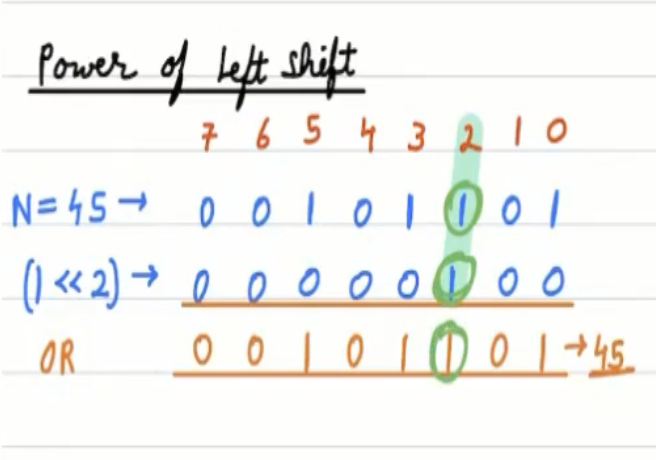 Power of Left Shift
7 6 5 4 3 2 1 0
N=45 → 0 0 1 0 1 1 0 1
(1 << 2) → 0 0 0 0 0 1 0 0
OR 0 0 1 0 1 1 0 1 → 45